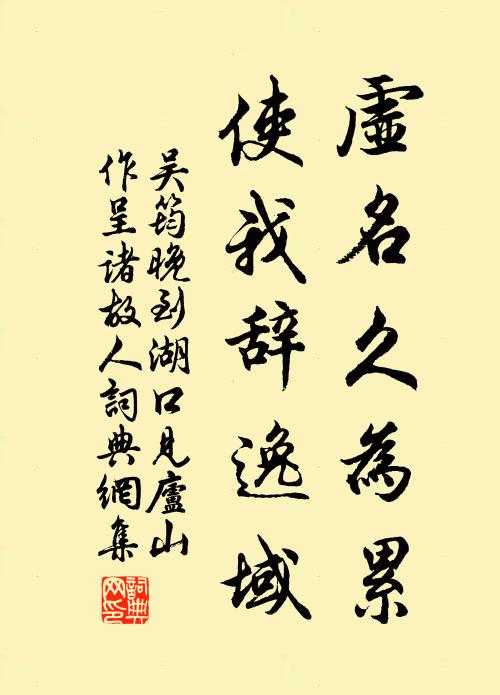 虛名久為累
使我辞逸域
吴筠晚到湖口見廬山
作呈诸故人詞典網集
詞典网印